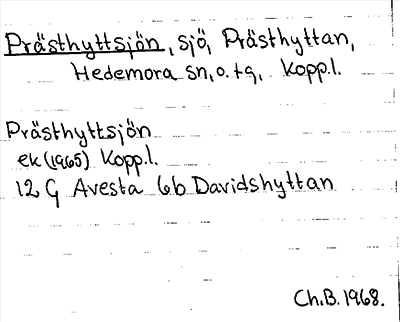 Prästhyttsjön, sjö, Prästhyttan,
Hedemora sn, o. tg, Kopp.l.
Prästhyttsjön
ek (1965) Kopp.l.
12 G Avesta 6b Davidshyttan
Ch.B. 1968.